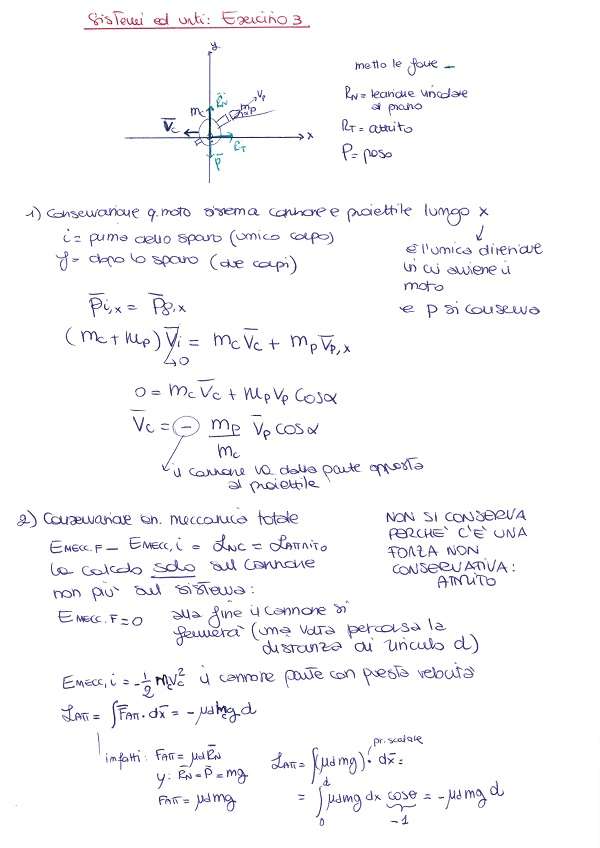 Sistemi ed urti: Esercizio 3
y
metto le forze
R_N = reazione vincolare al piano
R_T = attrito
P = peso
m_c R_N m_p V_p
V_c x
R_T
P
1) Conservazione q. moto sistema cannone e proiettile lungo x
i = prima dello sparo (unico corpo)
f = dopo lo sparo (due corpi)
è l'unica direzione
in cui avviene il
moto
e p si conserva
P̄i,x = P̄f,x
(mc + mp) V̄i = mc V̄c + mp V̄p,x
0
0 = mc V̄c + mp Vp cosα
V̄c = - mp/mc V̄p cosα
il cannone va dalla parte opposta
al proiettile
2) Conservazione en. meccanica totale
NON SI CONSERVA
PERCHE' C'È UNA
FORZA NON
CONSERVATIVA:
ATTRITO
EMECC,F - EMECC,i = LNC = LATTRITO
La calcolo solo sul cannone
non più sul sistema:
EMECC,F = 0 alla fine il cannone si
fermerà (una volta percorsa la
distanza di rinculo d)
EMECC,i = 1/2 mc Vc² il cannone parte con questa velocità
LATT = ∫ F̄ATT · dx̄ = -μd mc g d
infatti: FATT = μd R̄N
y: R̄N = P̄ = mg
FATT = μd mg
pr. scalare
LATT = ∫(μd mg) · dx̄ =
= ∫₀ᵈ μd mg dx cosθ = -μd mg d
-1